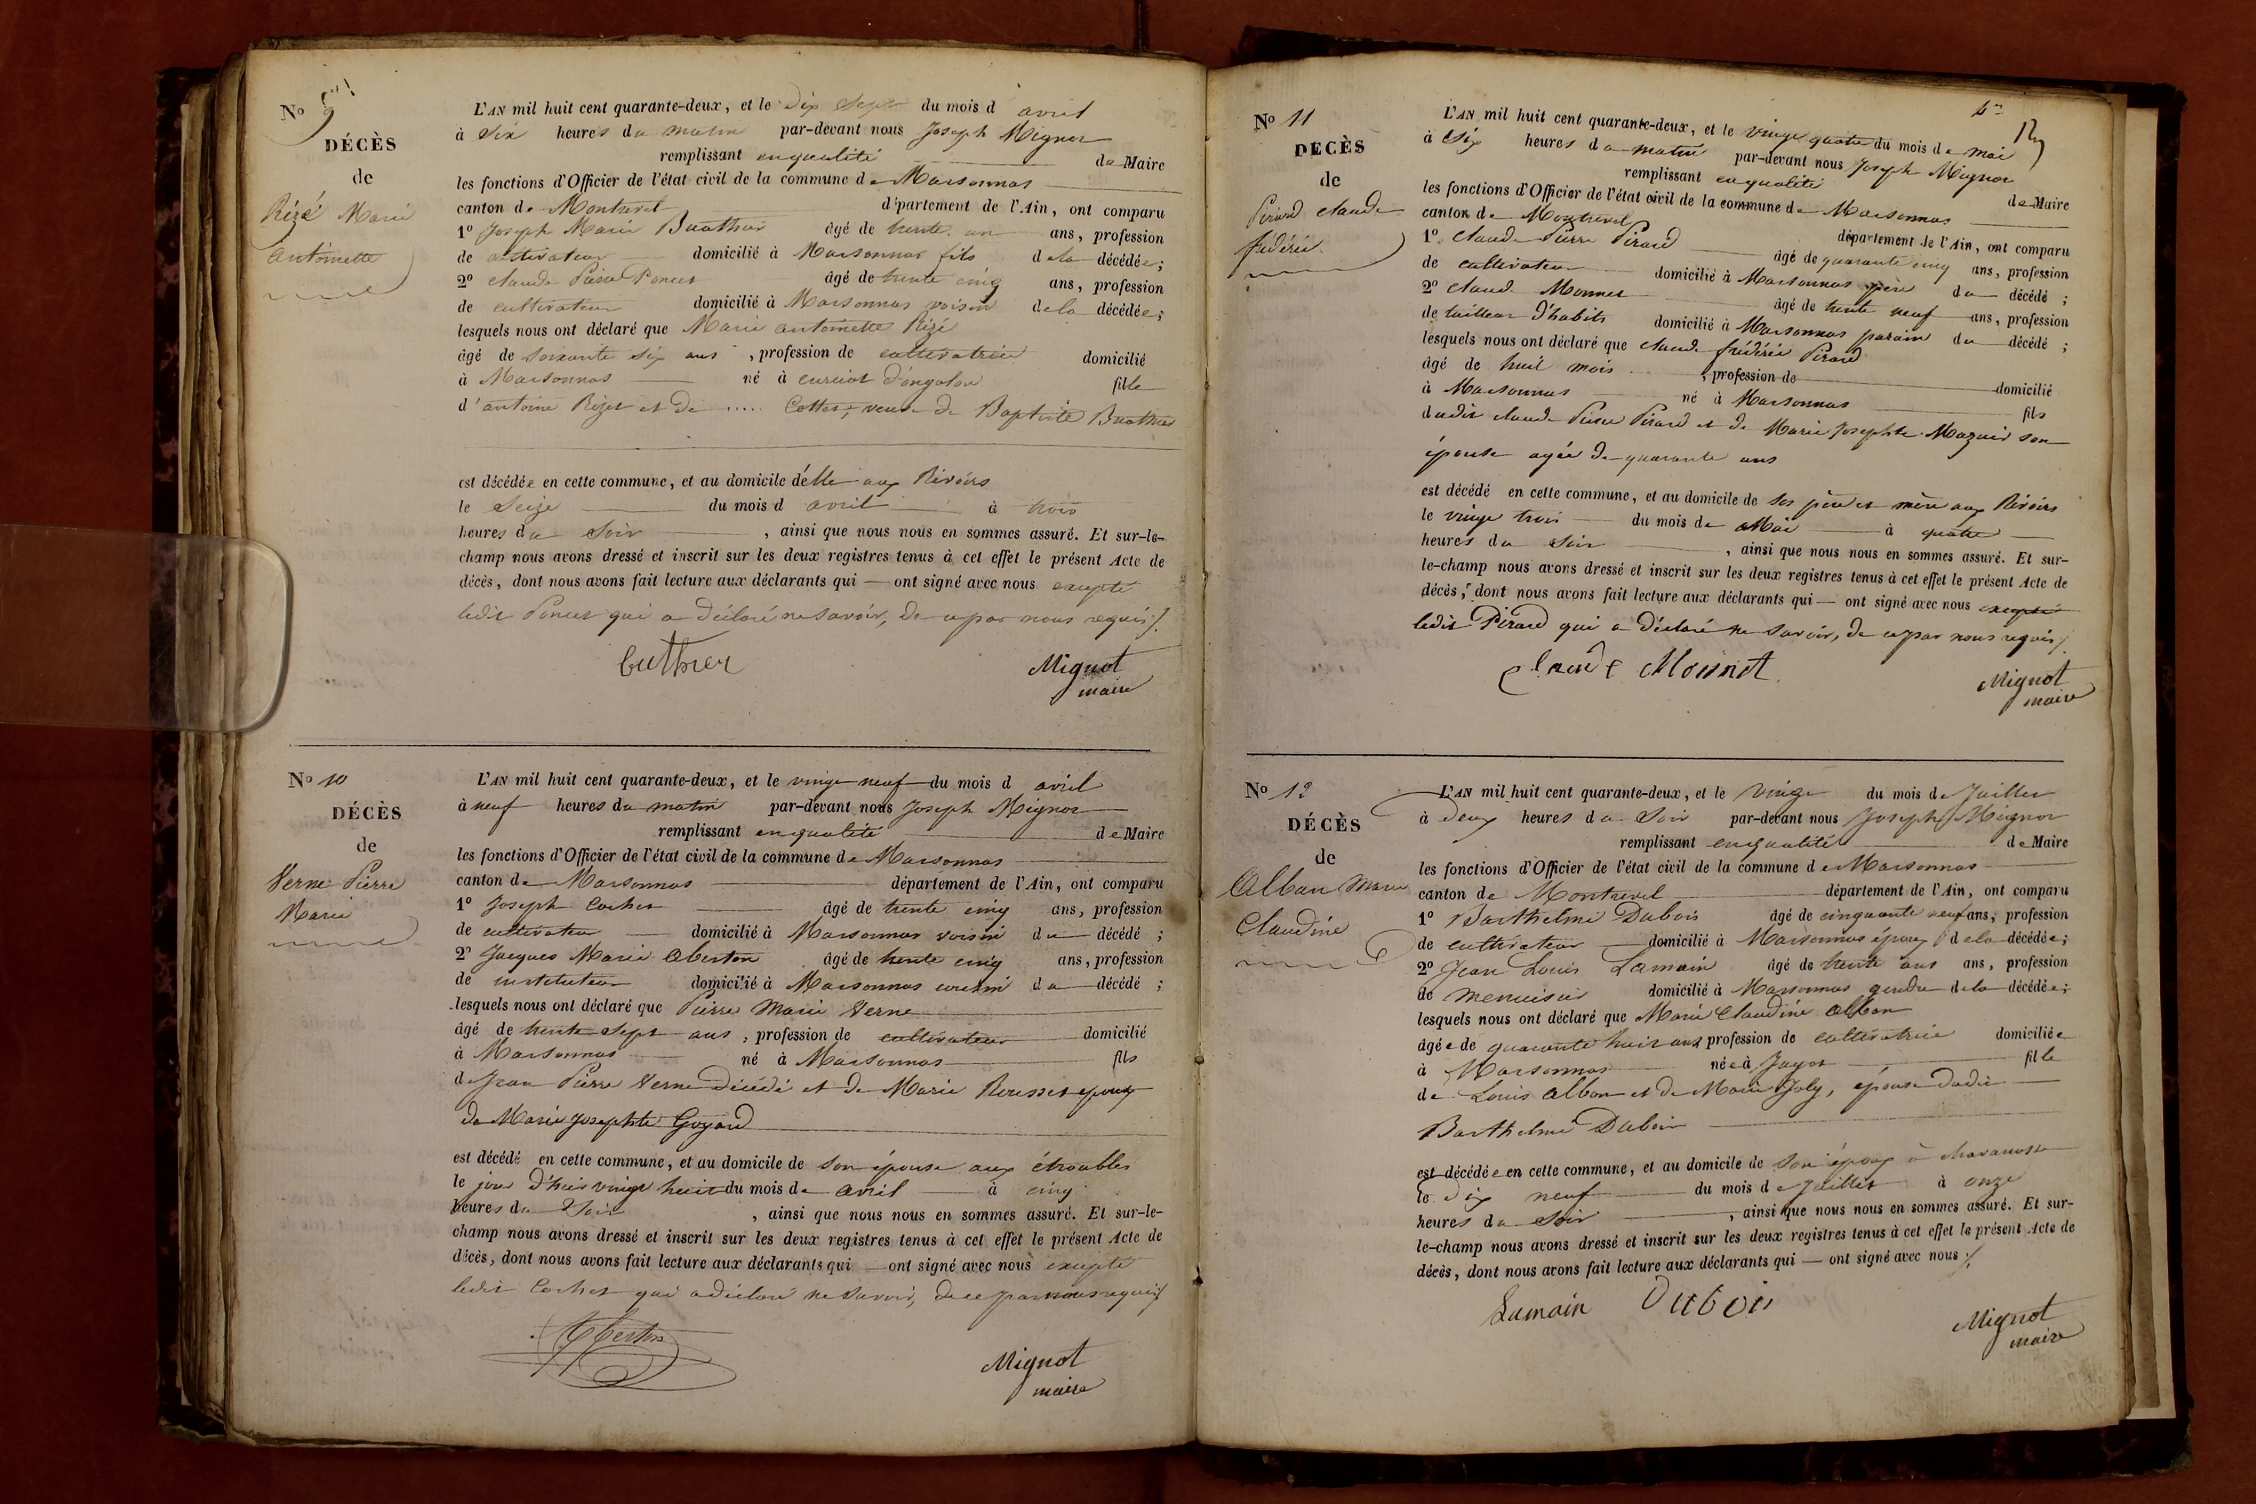 No 9
DÉCÈS
de
Rizé Marie
antoinette
L'AN mil huit cent quarante-deux, et le dix sept du mois d avril
à Six heures du matin par-devant nous Joseph Mignot
remplissant en qualité de Maire
les fonctions d'Officier de l'état civil de la commune de Marsonnas
canton de Montrevel département de l'Ain, ont comparu
1o Joseph Marie Buathier âgé de trente un ans, profession
de cultivateur domicilié à Marsonnas fils de la décédée;
2o claude Pierre Poncet âgé de trente cinq ans, profession
de cultivateur domicilié à Marsonnas voisin de la décédée;
lesquels nous ont déclaré que Marie antoinette Rizé
âgé de soixante six ans, profession de cultivatrice domicilié
à Marsonnas né à curciat d'ongalon fille
d'antoine Rizet et de ..... Cottet, veuve de Baptiste Buathier
est décédée en cette commune, et au domicile d'elle aux Rivoirs
le Seize du mois d avril à trois
heures du Soir, ainsi que nous nous en sommes assuré. Et sur-le-
champ nous avons dressé et inscrit sur les deux registres tenus à cet effet le présent Acte de
décès, dont nous avons fait lecture aux déclarants qui — ont signé avec nous excepté
ledit Poncet qui a déclaré ne savoir, de ce par nous requis ⁒.
buthier Mignot
maire
No 10
DÉCÈS
de
Verne Pierre
Marie
L'AN mil huit cent quarante-deux, et le vingt neuf du mois d avril
à neuf heures du matin par-devant nous Joseph Mignot
remplissant en qualité de Maire
les fonctions d'Officier de l'état civil de la commune de Marsonnas
canton de Marsonnas département de l'Ain, ont comparu
1o Joseph Cochet âgé de trente cinq ans, profession
de cultivateur domicilié à Marsonnas voisin du décédé;
2o Jacques Marie Oberton âgé de trente cinq ans, profession
de instituteur domicilié à Marsonnas cousin du décédé;
lesquels nous ont déclaré que Pierre Marie Verne
âgé de trente sept ans, profession de cultivateur domicilié
à Marsonnas né à Marsonnas fils
de Jean Pierre Verne décédé et de Marie Rousset époux
de Marie Josephte Goyard
est décédé en cette commune, et au domicile de son épouse aux étroubles
le jour d'hier vingt huit du mois de avril à cinq
heures du Soir, ainsi que nous nous en sommes assuré. Et sur-le-
champ nous avons dressé et inscrit sur les deux registres tenus à cet effet le présent Acte de
décès, dont nous avons fait lecture aux déclarants qui — ont signé avec nous excepté
ledit Cochet qui a déclaré ne savoir, de ce par nous requis ⁒
Mignot
maire
No 11
DÉCÈS
de
Pirard claude
frédéric
L'AN mil huit cent quarante-deux, et le vingt quatre du mois de mai
à Six heures du matin par-devant nous Joseph Mignot
remplissant en qualité de Maire
les fonctions d'Officier de l'état civil de la commune de Marsonnas
canton de Montrevel département de l'Ain, ont comparu
1o claude Pierre Pirard âgé de quarante cinq ans, profession
de cultivateur domicilié à Marsonnas père du décédé;
2o claud Monnet âgé de trente neuf ans, profession
de tailleur d'habits domicilié à Marsonnas parain du décédé;
lesquels nous ont déclaré que claude frédéric Pirard
âgé de huit mois, profession de domicilié
à Marsonnas né à Marsonnas fils
dudit claude Pierre Pirard et de Marie Josephte Mazuir son
épouse agée de quarante ans
est décédé en cette commune, et au domicile de ses père et mère aux Rivoirs
le vingt trois du mois de Mai à quatre
heures du Soir, ainsi que nous nous en sommes assuré. Et sur-
le-champ nous avons dressé et inscrit sur les deux registres tenus à cet effet le présent Acte de
décès, dont nous avons fait lecture aux déclarants qui — ont signé avec nous excepté
ledit Pirard qui a déclaré ne savoir, de ce par nous requis ⁒.
Claude Monnet Mignot
maire
No 12
DÉCÈS
de
Alban Marie
Claudine
L'AN mil huit cent quarante-deux, et le vingt du mois de Juillet
à deux heures du Soir par-devant nous Joseph Mignot
remplissant en qualité de Maire
les fonctions d'Officier de l'état civil de la commune de Marsonnas
canton de Montrevel département de l'Ain, ont comparu
1o Barthelmé Dubois âgé de cinquante neuf ans, profession
de cultivateur domicilié à Marsonnas époux de la décédée;
2o Jean Louis Lamain âgé de trente ans ans, profession
de menuisier domicilié à Marsonnas gendre de la décédée;
lesquels nous ont déclaré que Marie Claudine Alban
âgée de quarante huit ans, profession de cultivatrice domiciliée
à Marsonnas née à Jayat fille
de Louis Alban et de Marie Joly, épouse dudit
Barthelmé Dubois
est décédée en cette commune, et au domicile de son époux à
le dix neuf du mois de Juillet à onze
heures du Soir, ainsi que nous nous en sommes assuré. Et sur-
le-champ nous avons dressé et inscrit sur les deux registres tenus à cet effet le présent Acte de
décès, dont nous avons fait lecture aux déclarants qui — ont signé avec nous ⁒.
Lamain Dubois Mignot
maire